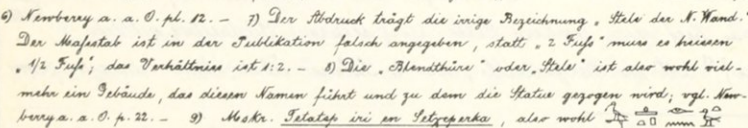 6) Newberry a. a. O. pl. 12. – 7) Der Abdruck trägt die irrige Bezeichnung „Stele der N. Wand."
Der Maßstab ist in der Publikation falsch angegeben, statt „2 Fuß" muss es heissen
„1/2 Fuß"; das Verhältniss ist 1:2. – 8) Die „Blendthüre" oder „Stele" ist also wohl viel-
mehr ein Gebäude, das diesen Namen führt und zu dem die Statue gezogen wird; vgl. New-
berry a. a. O. p. 22. – 9) Mskr. Tetatep iri en Setzeperka, also wohl